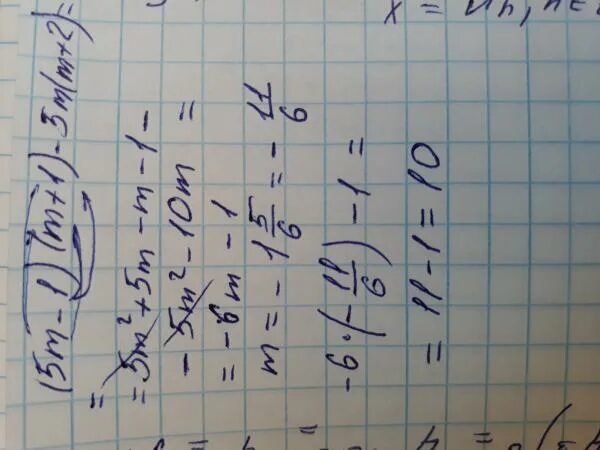 (5m-1)(m+1)-5m(m+2)=
=
=5m²+5m-m-1-
-5m²-10m=
=-6m-1
m=-1 5/6=-11/6
-6·(-11/6)-1=
=11-1=10